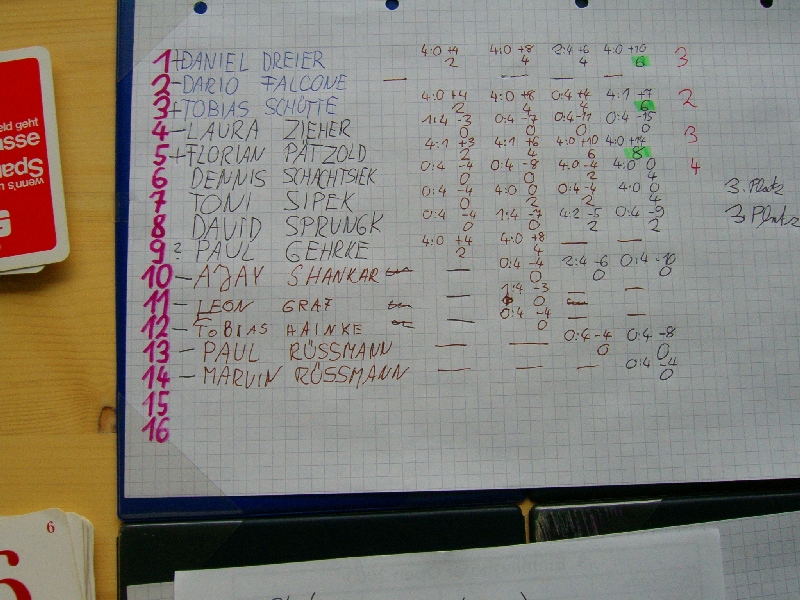 1 + DANIEL DREIER 4:0 +4 4:0 +8 2:4 +6 4:0 +10 3
2 4 4 6
2 — DARIO FALCONE — — — —
3 + TOBIAS SCHÜTTE 4:0 +4 4:0 +8 0:4 +4 4:1 +7 2
2 4 4 6
4 — LAURA ZIEHER 1:4 -3 0:4 -7 0:4 -11 0:4 -15
0 0 0 0
5 + FLORIAN PÄTZOLD 4:1 +3 4:1 +6 4:0 +10 4:0 +14 3
2 4 6 8
6 DENNIS SCHACHTSIEK 0:4 -4 0:4 -8 4:0 -4 4:0 0 4
0 0 2 4
7 TONI SIPEK 0:4 -4 4:0 0 0:4 -4 4:0 0 3. Platz
0 2 2 4
8 DAVID SPRUNGK 0:4 -4 1:4 -7 4:2 -5 0:4 -9 3 Platz
0 0 2 2
9 ? PAUL GEHRKE 4:0 +4 4:0 +8 — —
2 4
10 — AJAY SHANKAR — 0:4 -4 2:4 -6 0:4 -10
0 0 0
11 — LEON GRAF — 1:4 -3 — —
0
12 — TOBIAS HAINKE — 0:4 -4
0
13 — PAUL RÜSSMANN — — 0:4 -4 0:4 -8
0 0
14 — MARVIN RÜSSMANN — — — 0:4 4
0
15
16
eld geht
sse
Spa
wenn's u
6
6